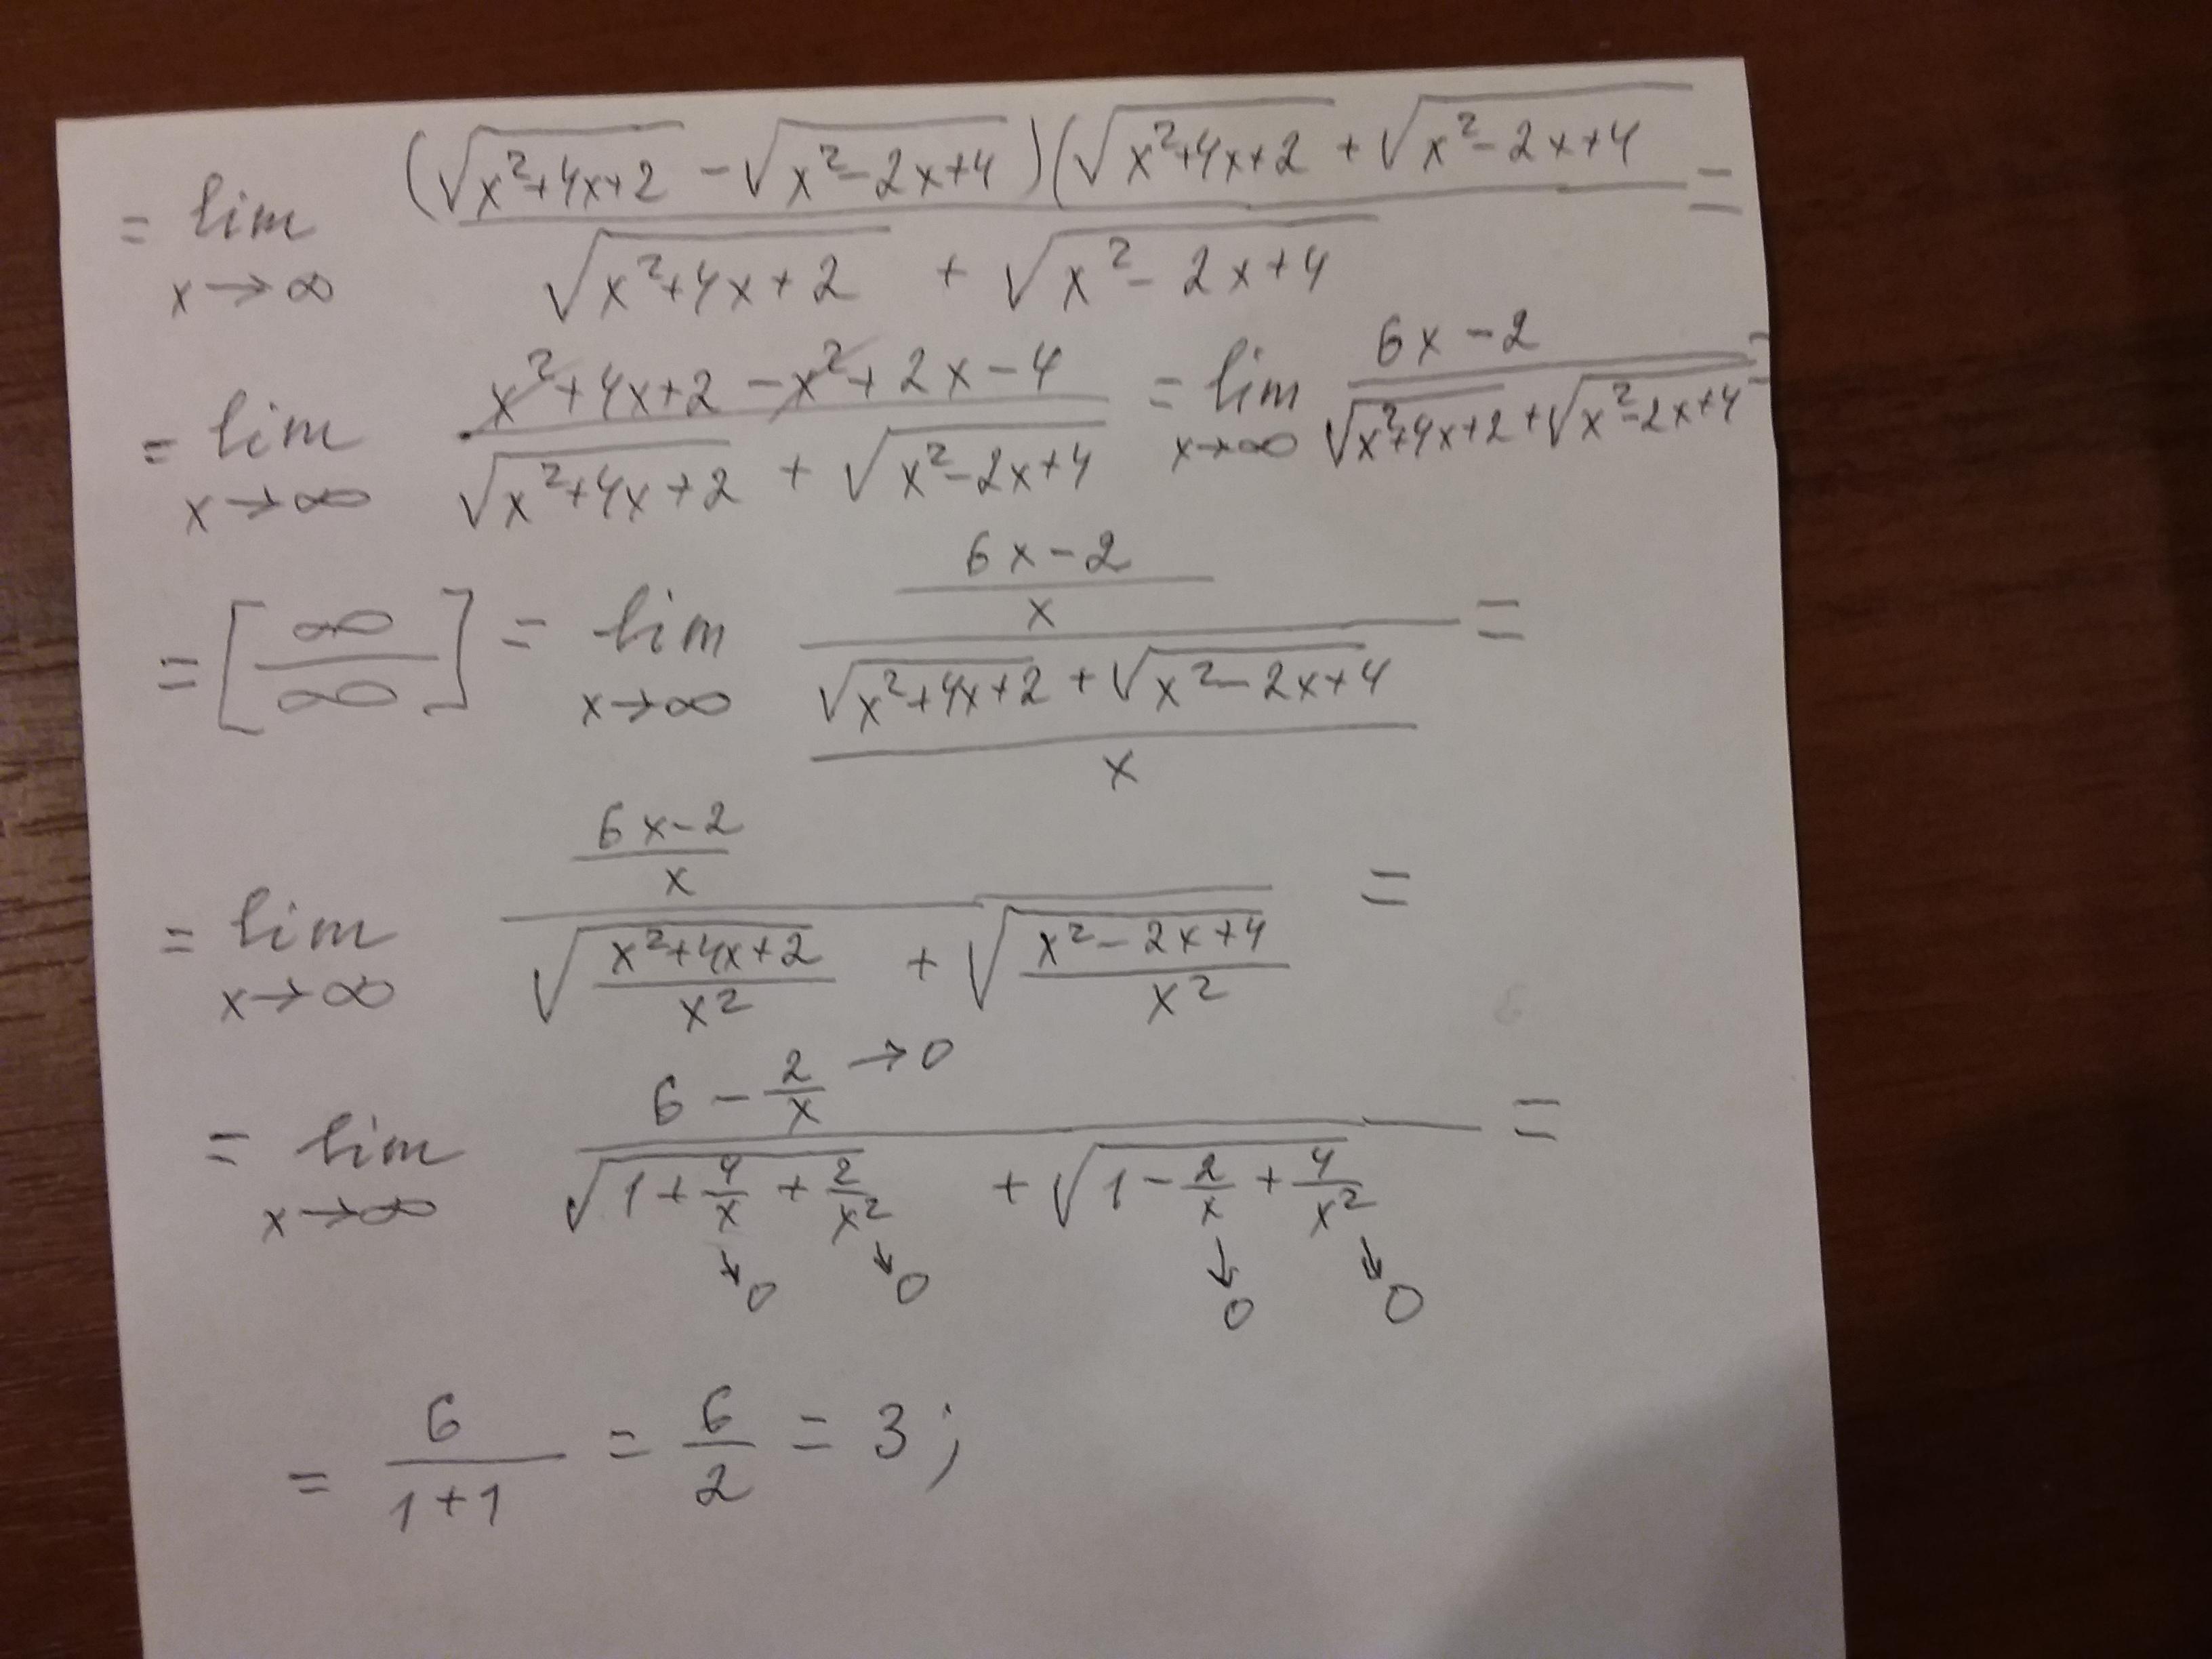 = lim x→∞ (√(x²+4x+2) − √(x²−2x+4))(√(x²+4x+2) + √(x²−2x+4) / √(x²+4x+2) + √(x²−2x+4) =
= lim x→∞ x²+4x+2−x²+2x−4 / √(x²+4x+2) + √(x²−2x+4) = lim x→∞ 6x−2 / √(x²+4x+2) + √(x²−2x+4) =
= [∞/∞] = lim x→∞ (6x−2 / x) / (√(x²+4x+2) + √(x²−2x+4) / x) =
= lim x→∞ (6x−2 / x) / (√(x²+4x+2 / x²) + √(x²−2x+4 / x²)) =
= lim x→∞ (6 − 2/x →0) / (√(1 + 4/x + 2/x²) + √(1 − 2/x + 4/x²)) =
↘0 ↘0 ↓0 ↘0
= 6 / 1+1 = 6/2 = 3;